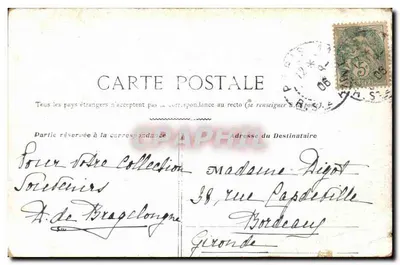 CARTE POSTALE
Tous les pays étrangers n'acceptent pas la correspondance au recto (Se renseigner
Partie réservée à la correspondance
Adresse du Destinataire
Pour votre collection
Souvenirs
A. de Bragelongne
Madame Digot
38, rue Capdeville
Bordeaux
Gironde
PARIS
06